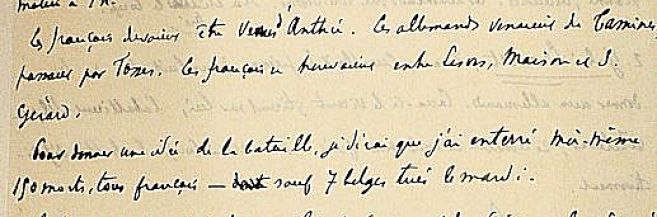 Les français devaient être venus d'Anthée. Les allemands venaient de Tamines,
passaient par Fosses. Les français se trouvaient entre Lesves, Maison et S.
Gérard.
Pour donner une idée de la bataille, je dirai que j'ai enterré moi-même
150 morts, tous français — dont sauf 7 belges tués le mardi.